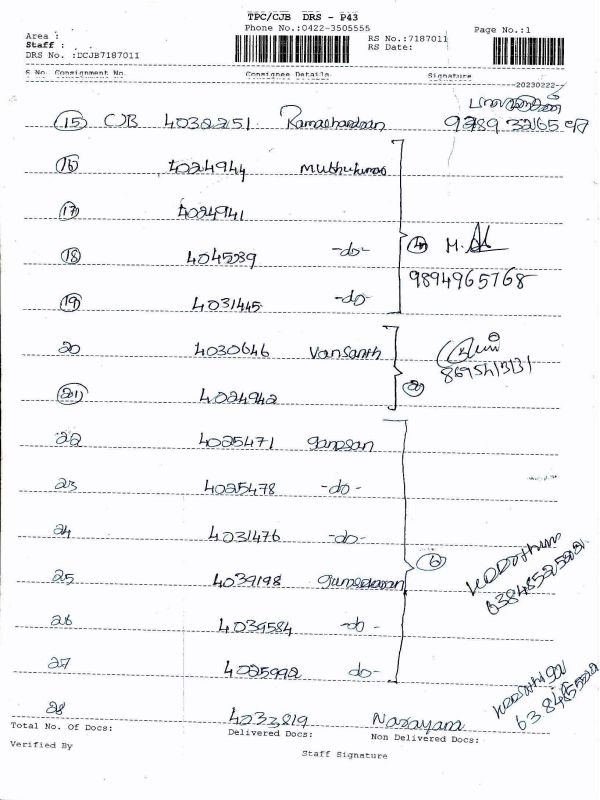 TPC/CJB DRS - P43
Phone No.:0422-3505555
Area :
Staff :
DRS No. :DCJB7187011
RS No.:7187011
RS Date:
Page No.:1
S No Consignment No. Consignee Details Signature
-20230222-
15 CJB 4032251 Ramachandran
9789 32165 97
16 4024944 Muthukumar
17 4024941
18 4045239 -do- 4 M.
19 4031445 -do- 9894965768
20 4030646 Vansanth
21 4024942 2 8695413131
22 4025471 Ganesan
23 4025478 -do-
24 4031476 -do-
25 4039198 6
26 4039584 -do-
27 4025992 do-
28 4033819 Narayana
Total No. Of Docs: Delivered Docs: Non Delivered Docs:
Verified By
Staff Signature